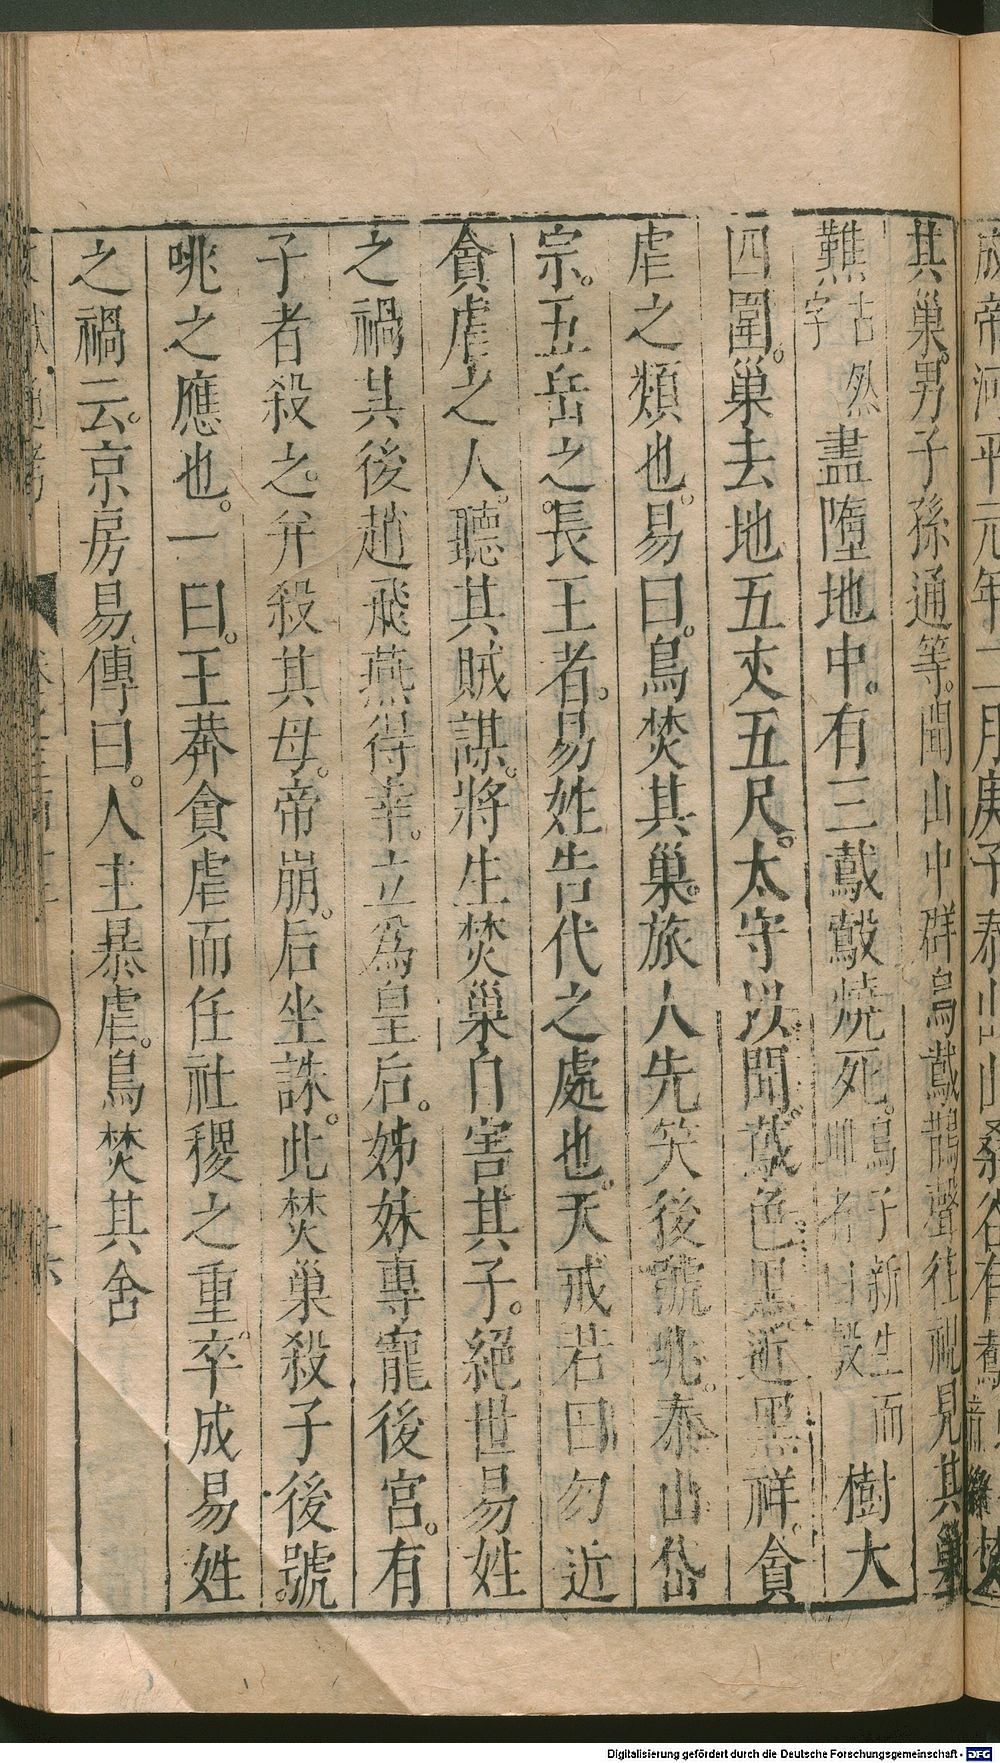 成帝河平元年二月庚子泰山山桑谷有𪆫焚
其巢男子孫通等聞山中群烏𪆫鵲聲往視見其巢
㸐古然字盡墮地中有三𪆫鷇燒死鳥子新生而哺者曰鷇樹大
四圍巢去地五丈五尺太守以聞𪆫色黑近黑祥貪
虐之類也易曰鳥焚其巢旅人先笑後號咷泰山岱
宗五岳之長王者易姓告代之處也天戒若曰勿近
貪虐之人聽其賊謀將生焚巢自害其子絕世易姓
之禍其後趙飛燕得幸立為皇后姊妹專寵後宮有
子者殺之并殺其母帝崩后坐誅此焚巢殺子後號
咷之應也一曰王莽貪虐而任社稷之重卒成易姓
之禍云京房易傳曰人主暴虐鳥焚其舍
Digitalisierung gefördert durch die Deutsche Forschungsgemeinschaft - DFG